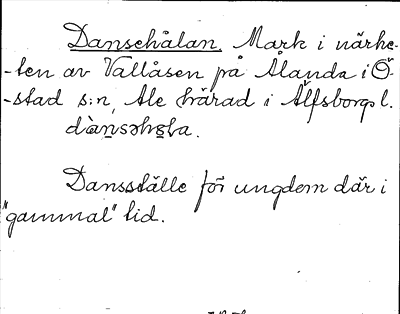 Dansehålan. Mark i närhe-
-ten av Vallåsen på Ålanda i Ö-
-stad s:n, Ale härad i Älfsborgs l.
Dansställe för ungdem där i
"gammal" tid.